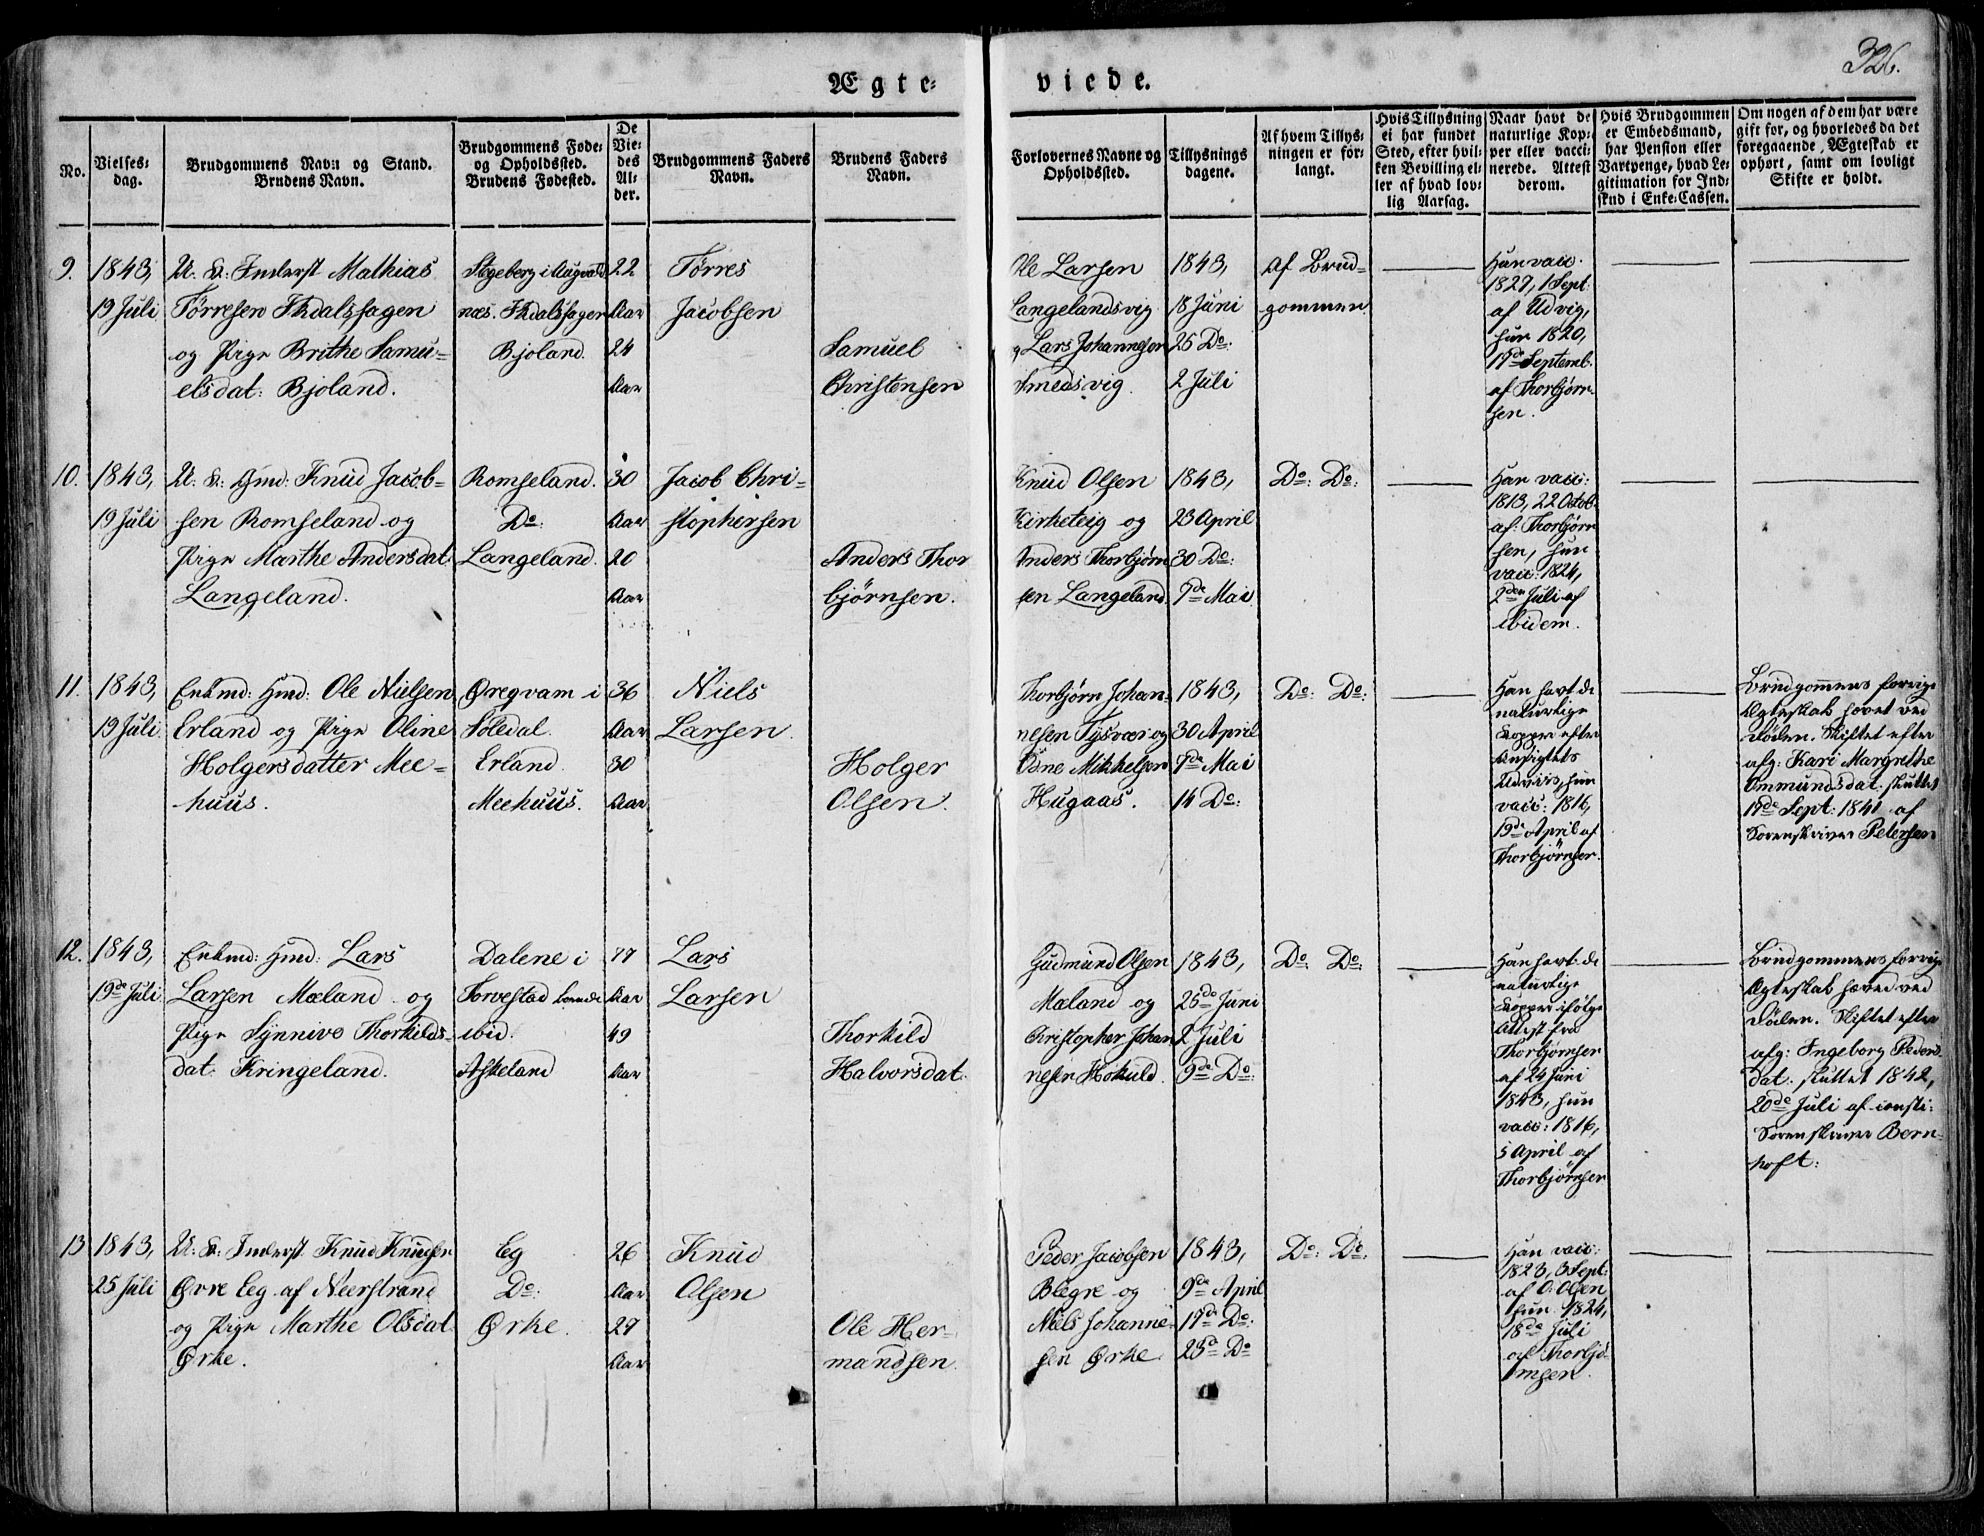 326.
Ægte- viede.
No.
Vielses-
dag.
Brudgommens Navn og Stand.
Brudens Navn.
Brudgommens Føde-
og Opholdssted.
Brudens Fødested.
De
Vie-
des
Al-
der.
Brudgommens Faders
Navn.
Brudens Faders
Navn.
Forlovernes Navne og
Opholdssted.
Tillysnings
dagene.
Af hvem Tillys-
ningen er for-
langt.
Hvis Tillysning
ei har fundet
Sted, efter hvil-
ken Bevilling el-
ler af hvad lov-
lig Aarsag.
Naar havt de
naturlige Kop-
per eller vacci-
nerede. Attest
derom.
Hvis Brudgommen
er Embedsmand,
har Pension eller
Vartpenge, hvad Le-
gitimation for Ind-
skud i Enke-Cassen.
Om nogen af dem har være
gift før, og hvorledes da det
foregaaende Ægteskab er
ophørt, samt om lovligt
Skifte er holdt.
9.
1843,
19 Juli
U. K: Inderst Mathias
Tørresen
og Pige Brithe Samu-
elsdat: Bjoland.
Stgeberg i Augvald
næs.
Bjoland.
22
Aar
24
Aar
Tørres
Jacobsen
Samuel
Christensen
Ole Larsen
Langelandsvig
Lars Johannesen
Smedsvig
1843,
18 Juni
25 Do:
2 Juli
Af Brud-
gommen
Han vacc.
1827, 1 Sept
af Udvig,
hun 1820,
19de Septemb.
af Thorbjørn-
sen.
10.
1843,
19 Juli
U. K: Gmd: Knud Jacob-
sen Romseland og
Pige Marthe Andersdat
Langeland.
Romseland.
Do:
Langeland.
30
Aar
20
Aar
Jacob Chri-
stophersen
Anders Thor
bjørnsen.
Knud Olsen
Kirketeig og
Anders Thorbjørn
sen Langeland
1843,
23 April
30 Do:
7de Mai
Do: Do:
Han vacc:
1813, 22 Octob.
af: Thorbjørn
sen, hun
vacc: 1824,
2den Juli af
ibidem.
11.
1843,
19 Juli
Enkmd: Gmd: Ole Nielsen
Erland og Pige Oline
Holgersdatter Mee-
huus.
Øregvam i
Søledal.
Erland
Meehuus.
36
Aar
30
Aar
Niels
Larsen.
Holger
Olsen.
Thorbjørn Johan-
nesen Tysvær og
Odne Mikkelsen
Hugaas.
1843,
30 April
7de Mai
14 Do:
Do: Do:
Han havt de
naturlige
Kopper efter
Ansigtets
Udviis, hun
vacc: 1816,
19de April af
Thorbjørnsen.
Brudgommens forrige
Ægteskab hævet ved
Døden. Skiftet efter
afg: Kari Margrethe
Ommundsdat. sluttet
17de Sept: 1841 af
Sorenskriver Petersen
12.
1843,
19de Juli
Enkmd: Gmd: Lars
Larsen Mæland og
Pige Synnive Thorkilds-
dat: Kringeland.
Dalene i
Torvestad
ibid.
Askeland
77
Aar
49
Aar
Lars
Larsen
Thorkild
Halvorsdat.
Gudmund Olsen
Mæland og
Christopher Johan
nesen Høkuld.
1843,
25de Juni
2 Juli
9de Do:
Do: Do:
Han havt de
naturlige
Kopper ifølge
Attest fra
Thorbjørnsen
af 24 Juni
1843, hun
vacc: 1816,
5 April af
Thorbjørnsen
Brudgommens forrige
Ægteskab hæved ved
Døden. Skiftet efter
afg: Ingeborg Peders
dat. sluttet 1842,
20de Juli af consti:
Sorenskriver Bern-
hoft:
13
1843,
25 Juli
U. K: Inderst Knud Knudsen
Øvre Eeg af Neerstrand
og Pige Marthe Olsdat
Ørke.
Eg
Do:
Ørke.
26
Aar
27
Aar
Knud
Olsen
Ole Her-
mandsen.
Peder Jacobsen
Blegre og
Niels Johanne-
sen Ørke
1843,
9de April
17de Do:
23de Do
Do: Do:
Han vacc:
1823, 3 Sept:
af O: Olsen
hun 1824,
18de Juli
af Thorbjø-
rnsen.